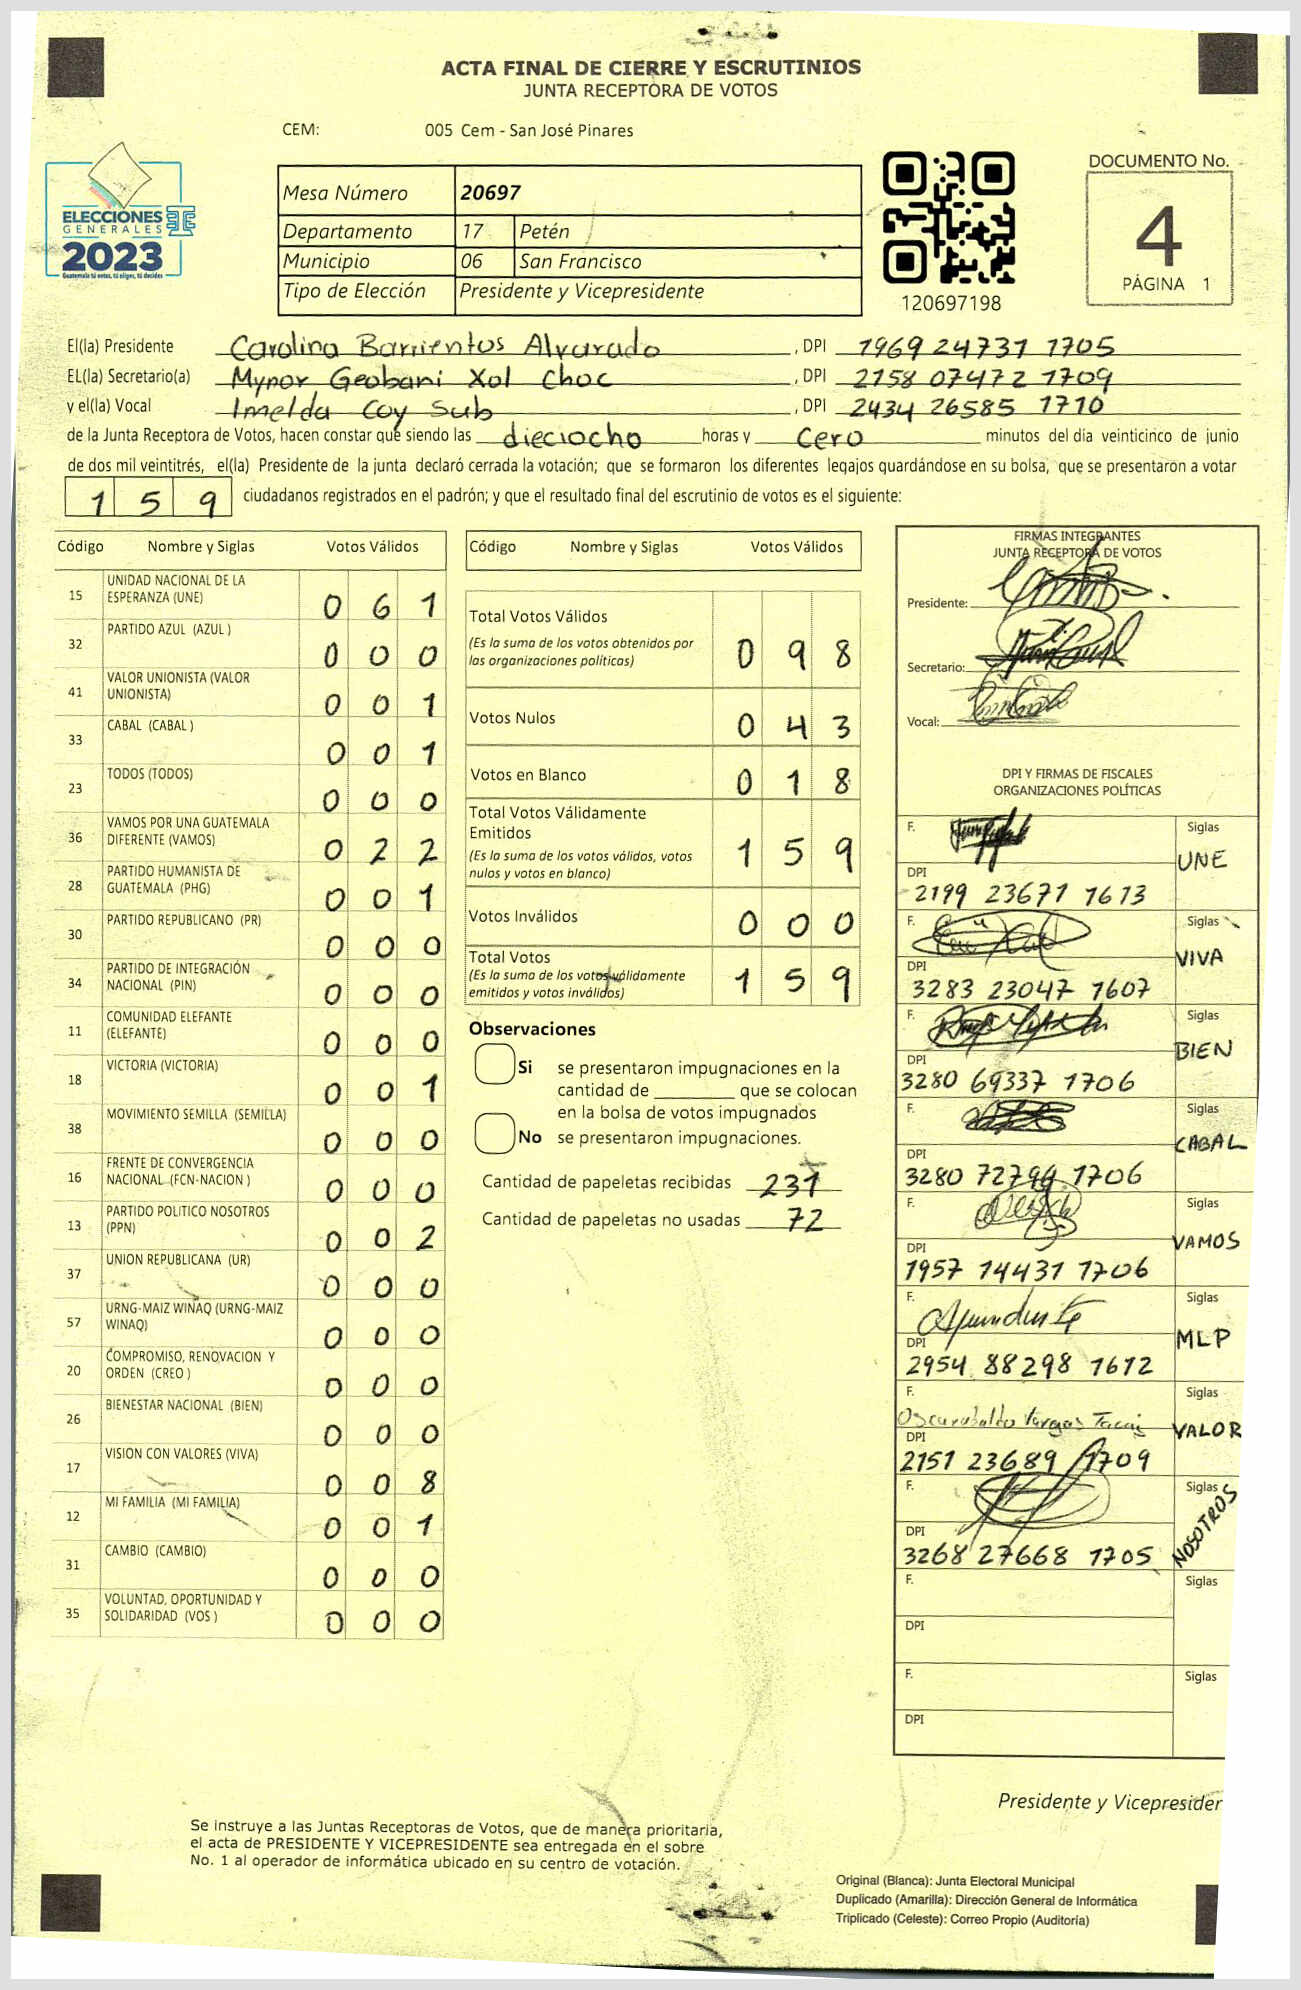 ACTA FINAL DE CIERRE Y ESCRUTINIOS
JUNTA RECEPTORA DE VOTOS
CEM: 005 Cem - San José Pinares
ELECCIONES
GENERALES
2023
Guatemala tú votas, tú eliges, tú decides
Mesa Número 20697
Departamento 17 Petén
Municipio 06 San Francisco
Tipo de Elección Presidente y Vicepresidente
120697198
DOCUMENTO No.
4
PÁGINA 1
El(la) Presidente Carolina Barrientos Alvarado , DPI 1969 24731 1705
EL(la) Secretario(a) Mynor Geobani Xol Choc , DPI 2158 07472 1709
y el(la) Vocal Imelda Coy Sub , DPI 2434 26585 1710
de la Junta Receptora de Votos, hacen constar que siendo las dieciocho horas y cero minutos del día veinticinco de junio
de dos mil veintitrés, el(la) Presidente de la junta declaró cerrada la votación; que se formaron los diferentes legajos guardándose en su bolsa, que se presentaron a votar
159 ciudadanos registrados en el padrón; y que el resultado final del escrutinio de votos es el siguiente:
Código Nombre y Siglas Votos Válidos
15 UNIDAD NACIONAL DE LA ESPERANZA (UNE) 0 6 1
32 PARTIDO AZUL (AZUL ) 0 0 0
41 VALOR UNIONISTA (VALOR UNIONISTA) 0 0 1
33 CABAL (CABAL ) 0 0 1
23 TODOS (TODOS) 0 0 0
36 VAMOS POR UNA GUATEMALA DIFERENTE (VAMOS) 0 2 2
28 PARTIDO HUMANISTA DE GUATEMALA (PHG) 0 0 1
30 PARTIDO REPUBLICANO (PR) 0 0 0
34 PARTIDO DE INTEGRACIÓN NACIONAL (PIN) 0 0 0
11 COMUNIDAD ELEFANTE (ELEFANTE) 0 0 0
18 VICTORIA (VICTORIA) 0 0 1
38 MOVIMIENTO SEMILLA (SEMILLA) 0 0 0
16 FRENTE DE CONVERGENCIA NACIONAL (FCN-NACION ) 0 0 0
13 PARTIDO POLITICO NOSOTROS (PPN) 0 0 2
37 UNION REPUBLICANA (UR) 0 0 0
57 URNG-MAIZ WINAQ (URNG-MAIZ WINAQ) 0 0 0
20 COMPROMISO, RENOVACION Y ORDEN (CREO ) 0 0 0
26 BIENESTAR NACIONAL (BIEN) 0 0 0
17 VISION CON VALORES (VIVA) 0 0 8
12 MI FAMILIA (MI FAMILIA) 0 0 1
31 CAMBIO (CAMBIO) 0 0 0
35 VOLUNTAD, OPORTUNIDAD Y SOLIDARIDAD (VOS ) 0 0 0
Código Nombre y Siglas Votos Válidos
Total Votos Válidos 0 9 8
(Es la suma de los votos obtenidos por
las organizaciones políticas)
Votos Nulos 0 4 3
Votos en Blanco 0 1 8
Total Votos Válidamente
Emitidos 1 5 9
(Es la suma de los votos válidos, votos
nulos y votos en blanco)
Votos Inválidos 0 0 0
Total Votos 1 5 9
(Es la suma de los votos válidamente
emitidos y votos inválidos)
Observaciones
Si se presentaron impugnaciones en la
cantidad de ________ que se colocan
en la bolsa de votos impugnados
No se presentaron impugnaciones.
Cantidad de papeletas recibidas 231
Cantidad de papeletas no usadas 72
FIRMAS INTEGRANTES
JUNTA RECEPTORA DE VOTOS
Presidente:
Secretario:
Vocal:
DPI Y FIRMAS DE FISCALES
ORGANIZACIONES POLÍTICAS
F. Siglas UNE
DPI 2199 23671 1613
F. Siglas VIVA
DPI 3283 23047 1607
F. Siglas BIEN
DPI 3280 69337 1706
F. Siglas CABAL
DPI 3280 72794 1706
F. Siglas VAMOS
DPI 1957 14431 1706
F. Siglas MLP
DPI 2954 88298 1612
F. Vargas Siglas VALOR
DPI 2151 23689 1709
F. Siglas NOSOTROS
DPI 3268 27668 1705
F. Siglas
DPI
F. Siglas
DPI
Presidente y Vicepresiden
Se instruye a las Juntas Receptoras de Votos, que de manera prioritaria,
el acta de PRESIDENTE Y VICEPRESIDENTE sea entregada en el sobre
No. 1 al operador de informática ubicado en su centro de votación.
Original (Blanca): Junta Electoral Municipal
Duplicado (Amarilla): Dirección General de Informática
Triplicado (Celeste): Correo Propio (Auditoría)